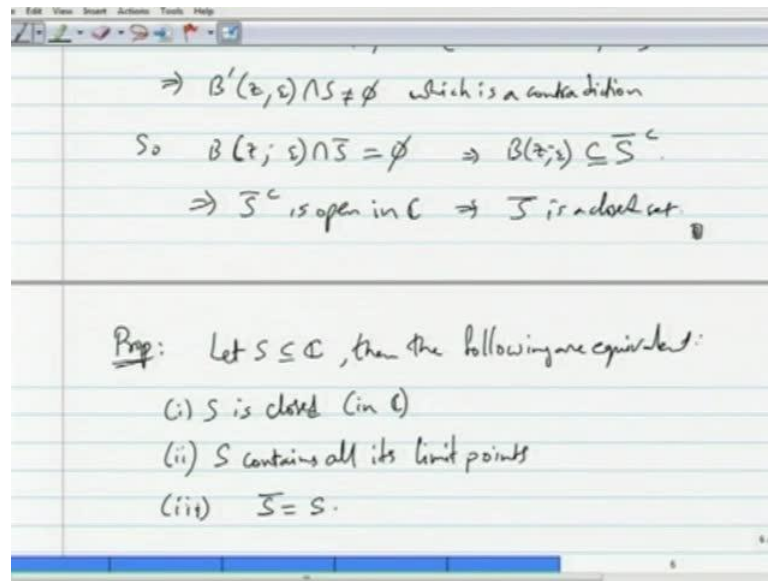 Edit View Insert Actions Tools Help
⇒ B'(z, ε) ∩ S ≠ φ which is a contradiction
So B(z; ε) ∩ S̅ = φ ⇒ B(z; ε) ⊆ S̅ᶜ.
⇒ S̅ᶜ is open in ℂ ⇒ S̅ is a closed set.
Prop: Let S ⊆ ℂ, then the following are equivalent:
(i) S is closed (in ℂ)
(ii) S contains all its limit points
(iii) S̅ = S.
6